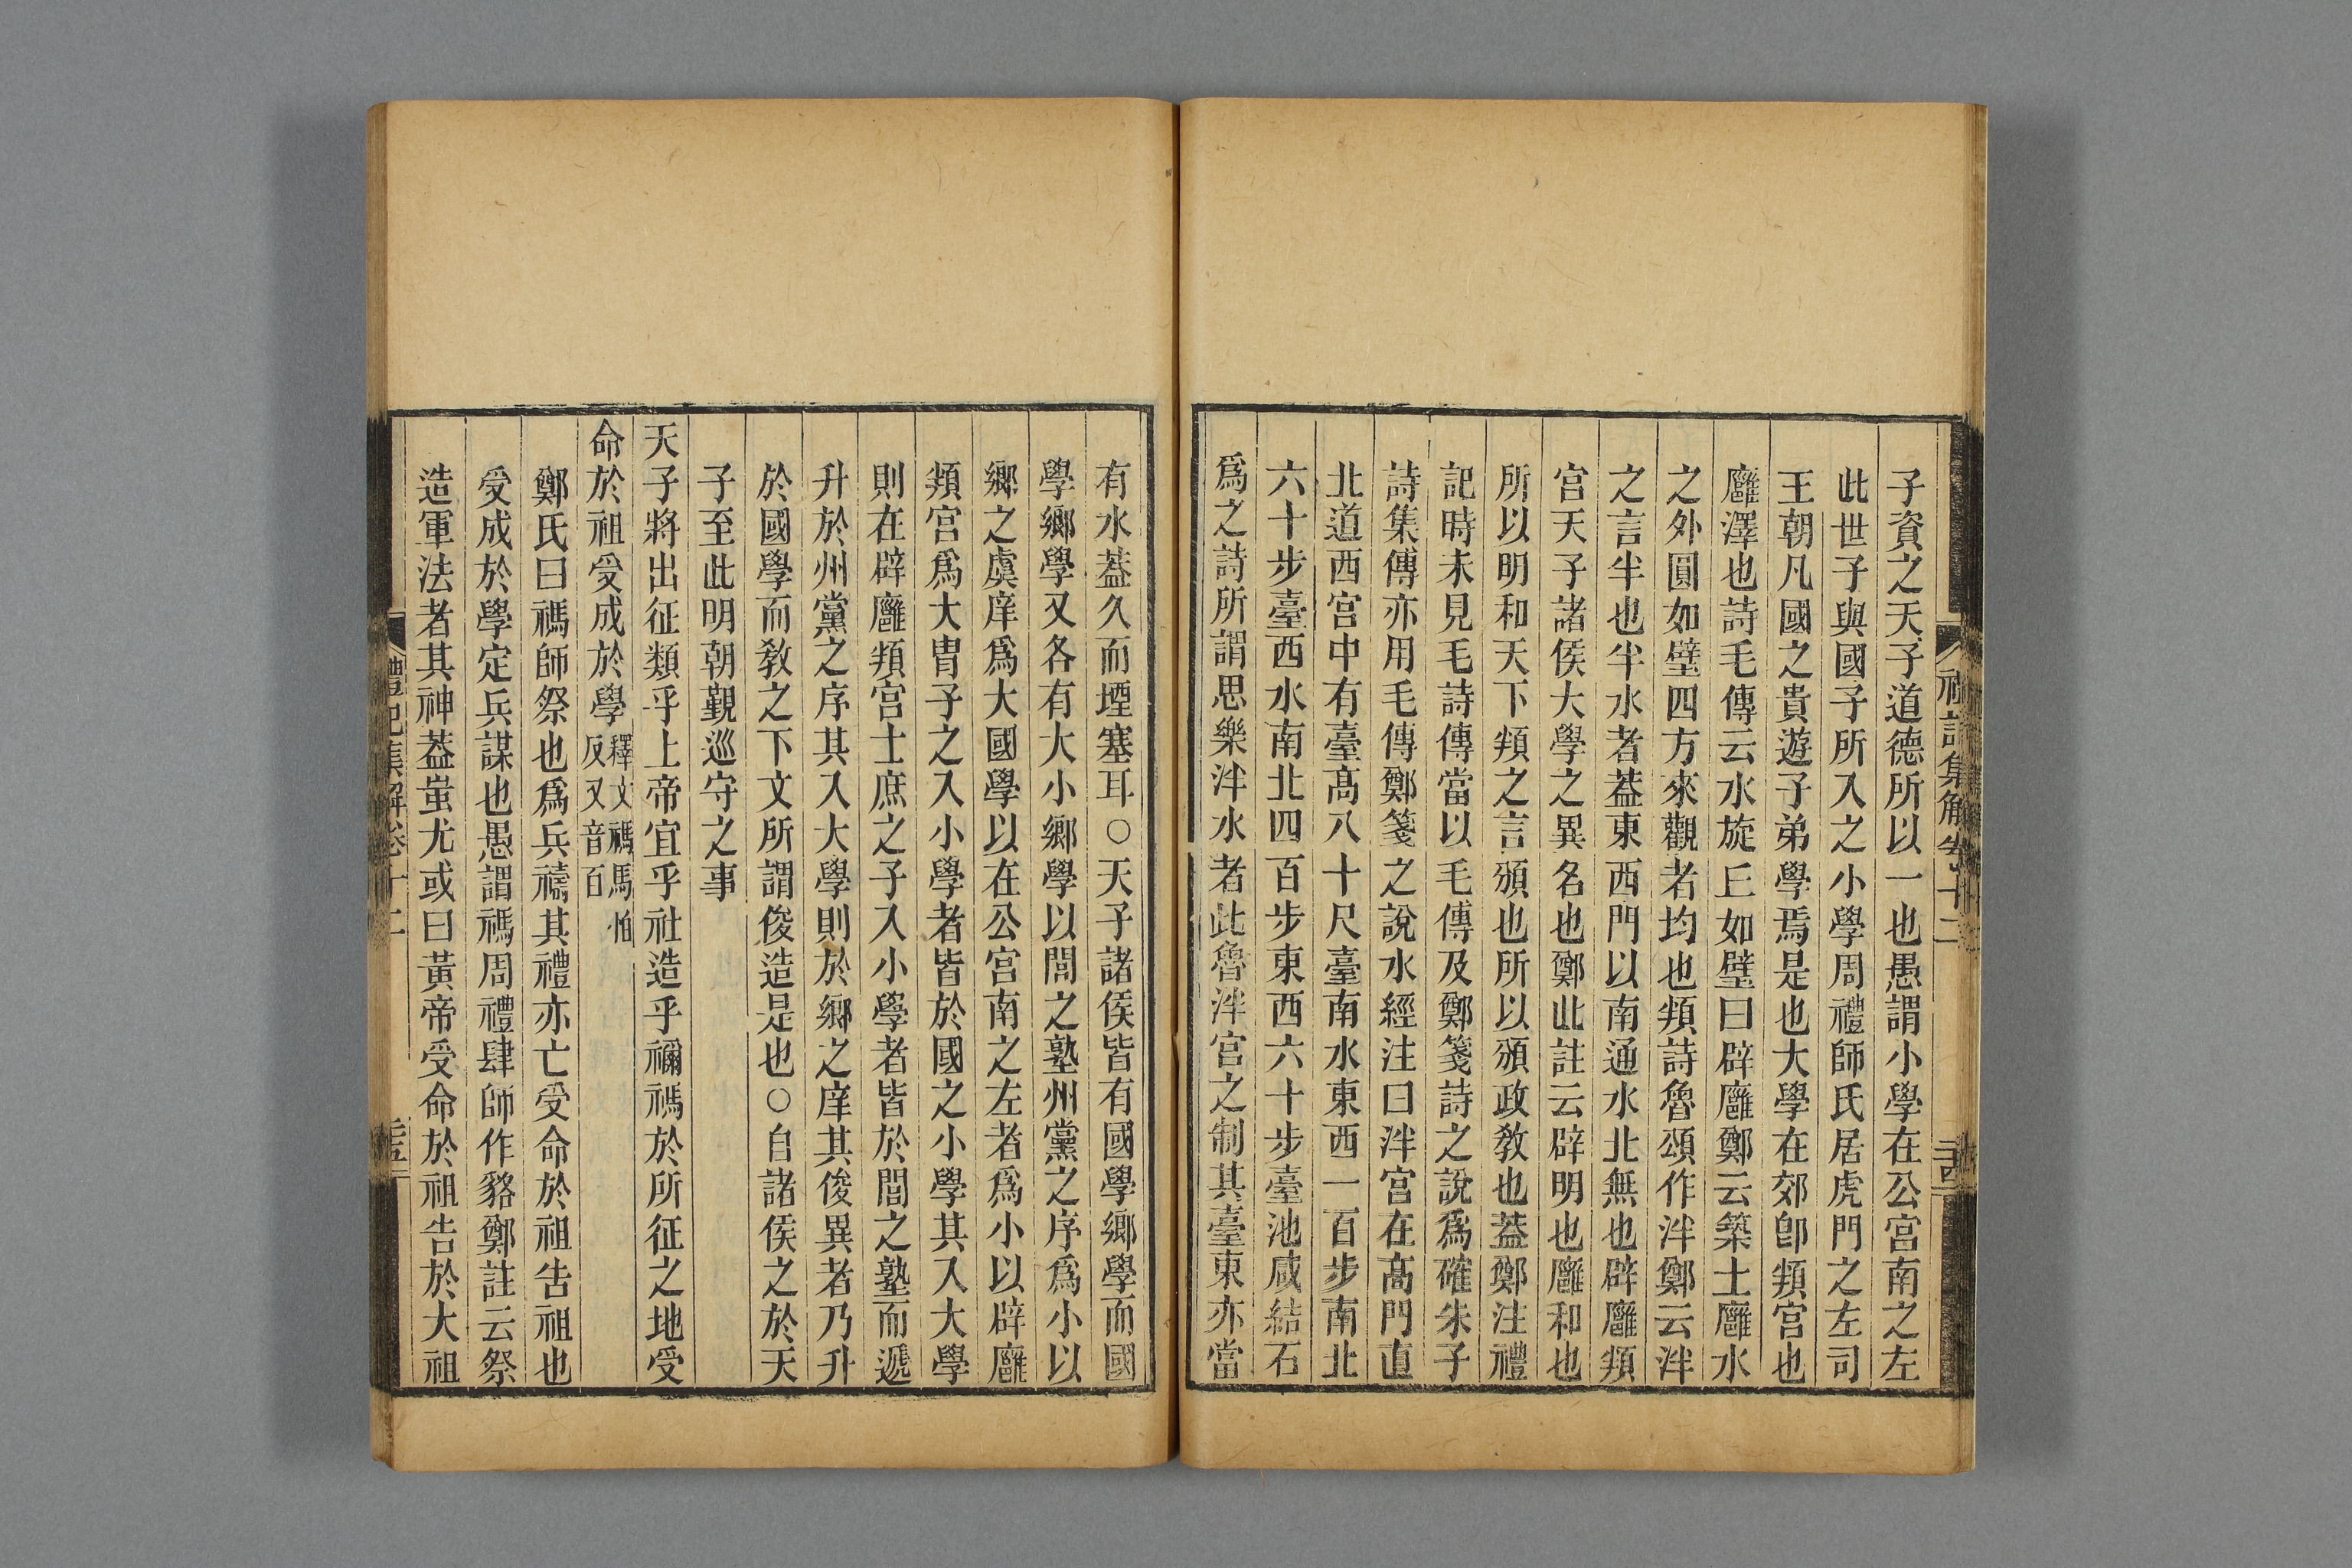 子資之天子道德所以一也愚謂小學在公宮南之左
此世子與國子所入之小學周禮師氏居虎門之左司
王朝凡國之貴遊子弟學焉是也大學在郊卽頖宮也
廱澤也詩毛傳云水旋丘如璧曰辟廱鄭云築土廱水
之外圓如璧四方來觀者均也頖詩魯頌作泮鄭云泮
之言半也半水者葢東西門以南通水北無也辟廱頖
宮天子諸侯大學之異名也鄭此註云辟明也廱和也
所以明和天下頖之言頒也所以頒政敎也葢鄭注禮
記時未見毛詩傳當以毛傳及鄭箋詩之說爲確朱子
詩集傳亦用毛傳鄭箋之說水經注曰泮宮在高門直
北道西宮中有臺高八十尺臺南水東西一百步南北
六十步臺西水南北四百步東西六十步臺池咸結石
爲之詩所謂思樂泮水者此魯泮宮之制其臺東亦當
有水葢久而堙塞耳○天子諸侯皆有國學鄉學而國
學鄉學又各有大小鄉學以閭之塾州黨之序爲小以
鄉之虞庠爲大國學以在公宮南之左者爲小以辟廱
頖宮爲大胄子之入小學者皆於國之小學其入大學
則在辟廱頖宮士庶之子入小學者皆於閭之塾而遞
升於州黨之序其入大學則於鄉之庠其俊異者乃升
於國學而敎之下文所謂俊造是也○自諸侯之於天
子至此明朝覲巡守之事
天子將出征類乎上帝宜乎社造乎禰禡於所征之地受
命於祖受成於學釋文禡馬怕反又音百
鄭氏曰禡師祭也爲兵禱其禮亦亡受命於祖告祖也
受成於學定兵謀也愚謂禡周禮肆師作貉鄭註云祭
造軍法者其神葢蚩尤或曰黃帝受命於祖告於大祖
禮記集解卷十二